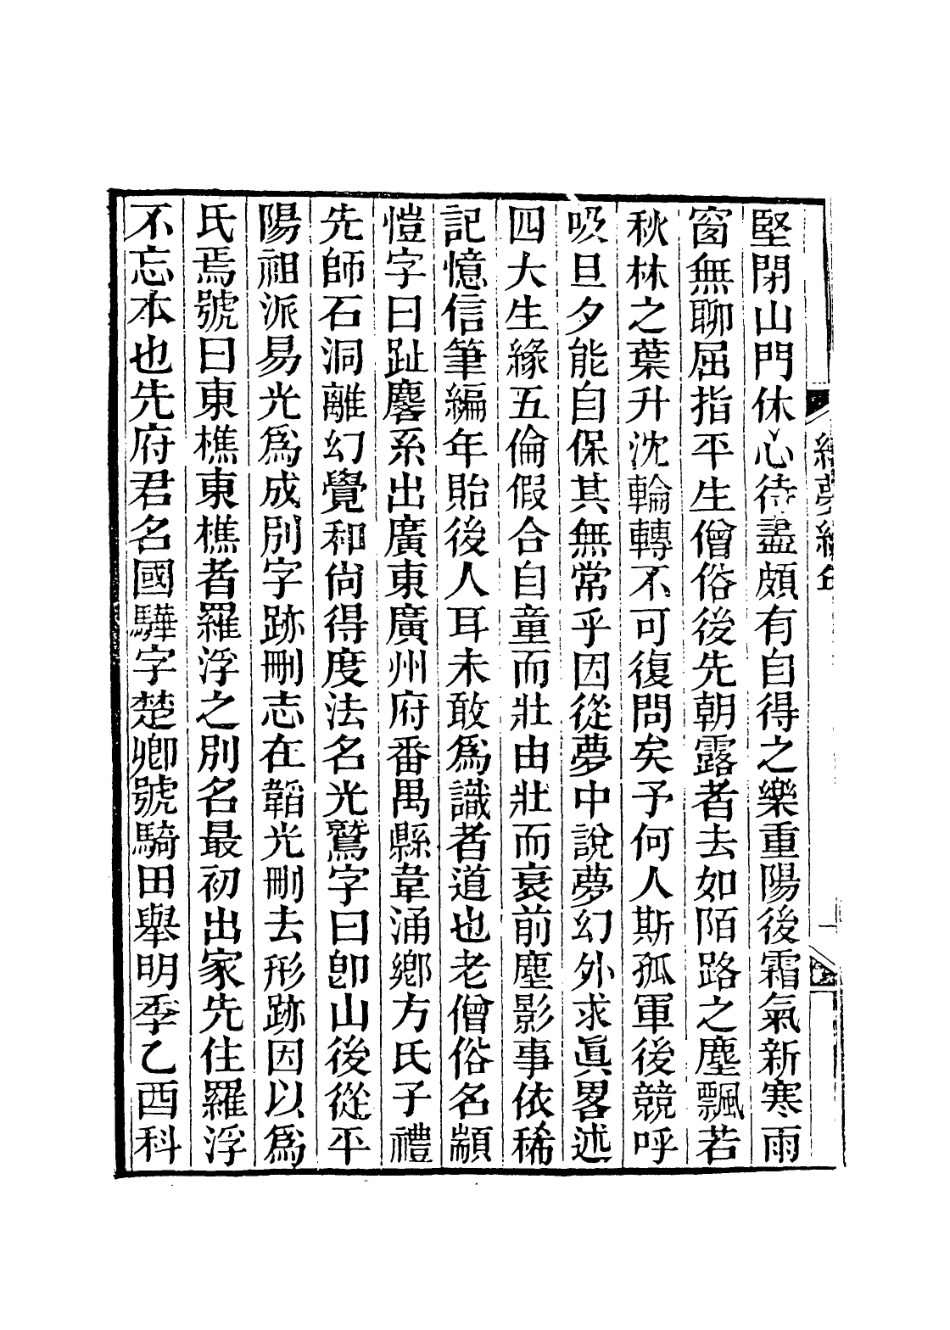 堅閉山門休心待盡頗有自得之樂重陽後霜氣新寒雨
窗無聊屈指平生僧俗後先朝露者去如陌路之塵飄若
秋林之葉升沈輪轉不可復問矣予何人斯孤軍後競呼
吸旦夕能自保其無常乎因從夢中說夢幻外求眞畧述
四大生緣五倫假合自童而壯由壯而衰前塵影事依稀
記憶信筆編年貽後人耳未敢爲識者道也老僧俗名顓
愷字曰趾麐系出廣東廣州府番禺縣韋涌鄉方氏子禮
先師石洞離幻覺和尙得度法名光鷲字曰卽山後從平
陽祖派易光爲成別字跡刪志在韜光刪去形跡因以爲
氏焉號曰東樵東樵者羅浮之別名最初出家先住羅浮
不忘本也先府君名國驊字楚卿號騎田舉明季乙酉科
夢編年
一